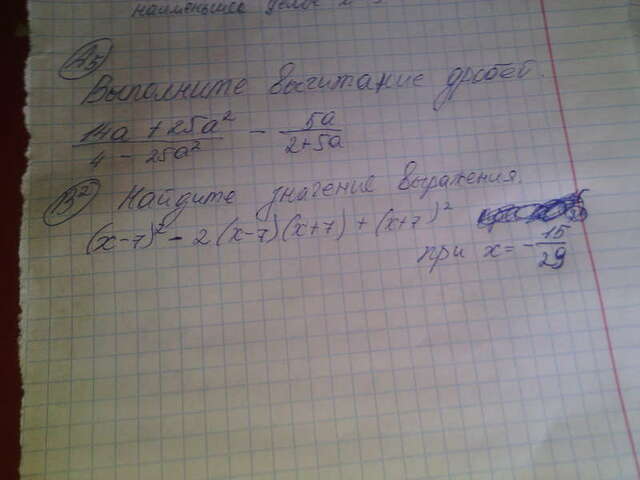 наименьшее
А5
Выполните вычитание дробей.
14a + 25a² / 4 - 25a² - 5a / 2+5a
В2 Найдите значение выражения.
(x-7)² - 2(x-7)(x+7) + (x+7)²
при x = - 15/29